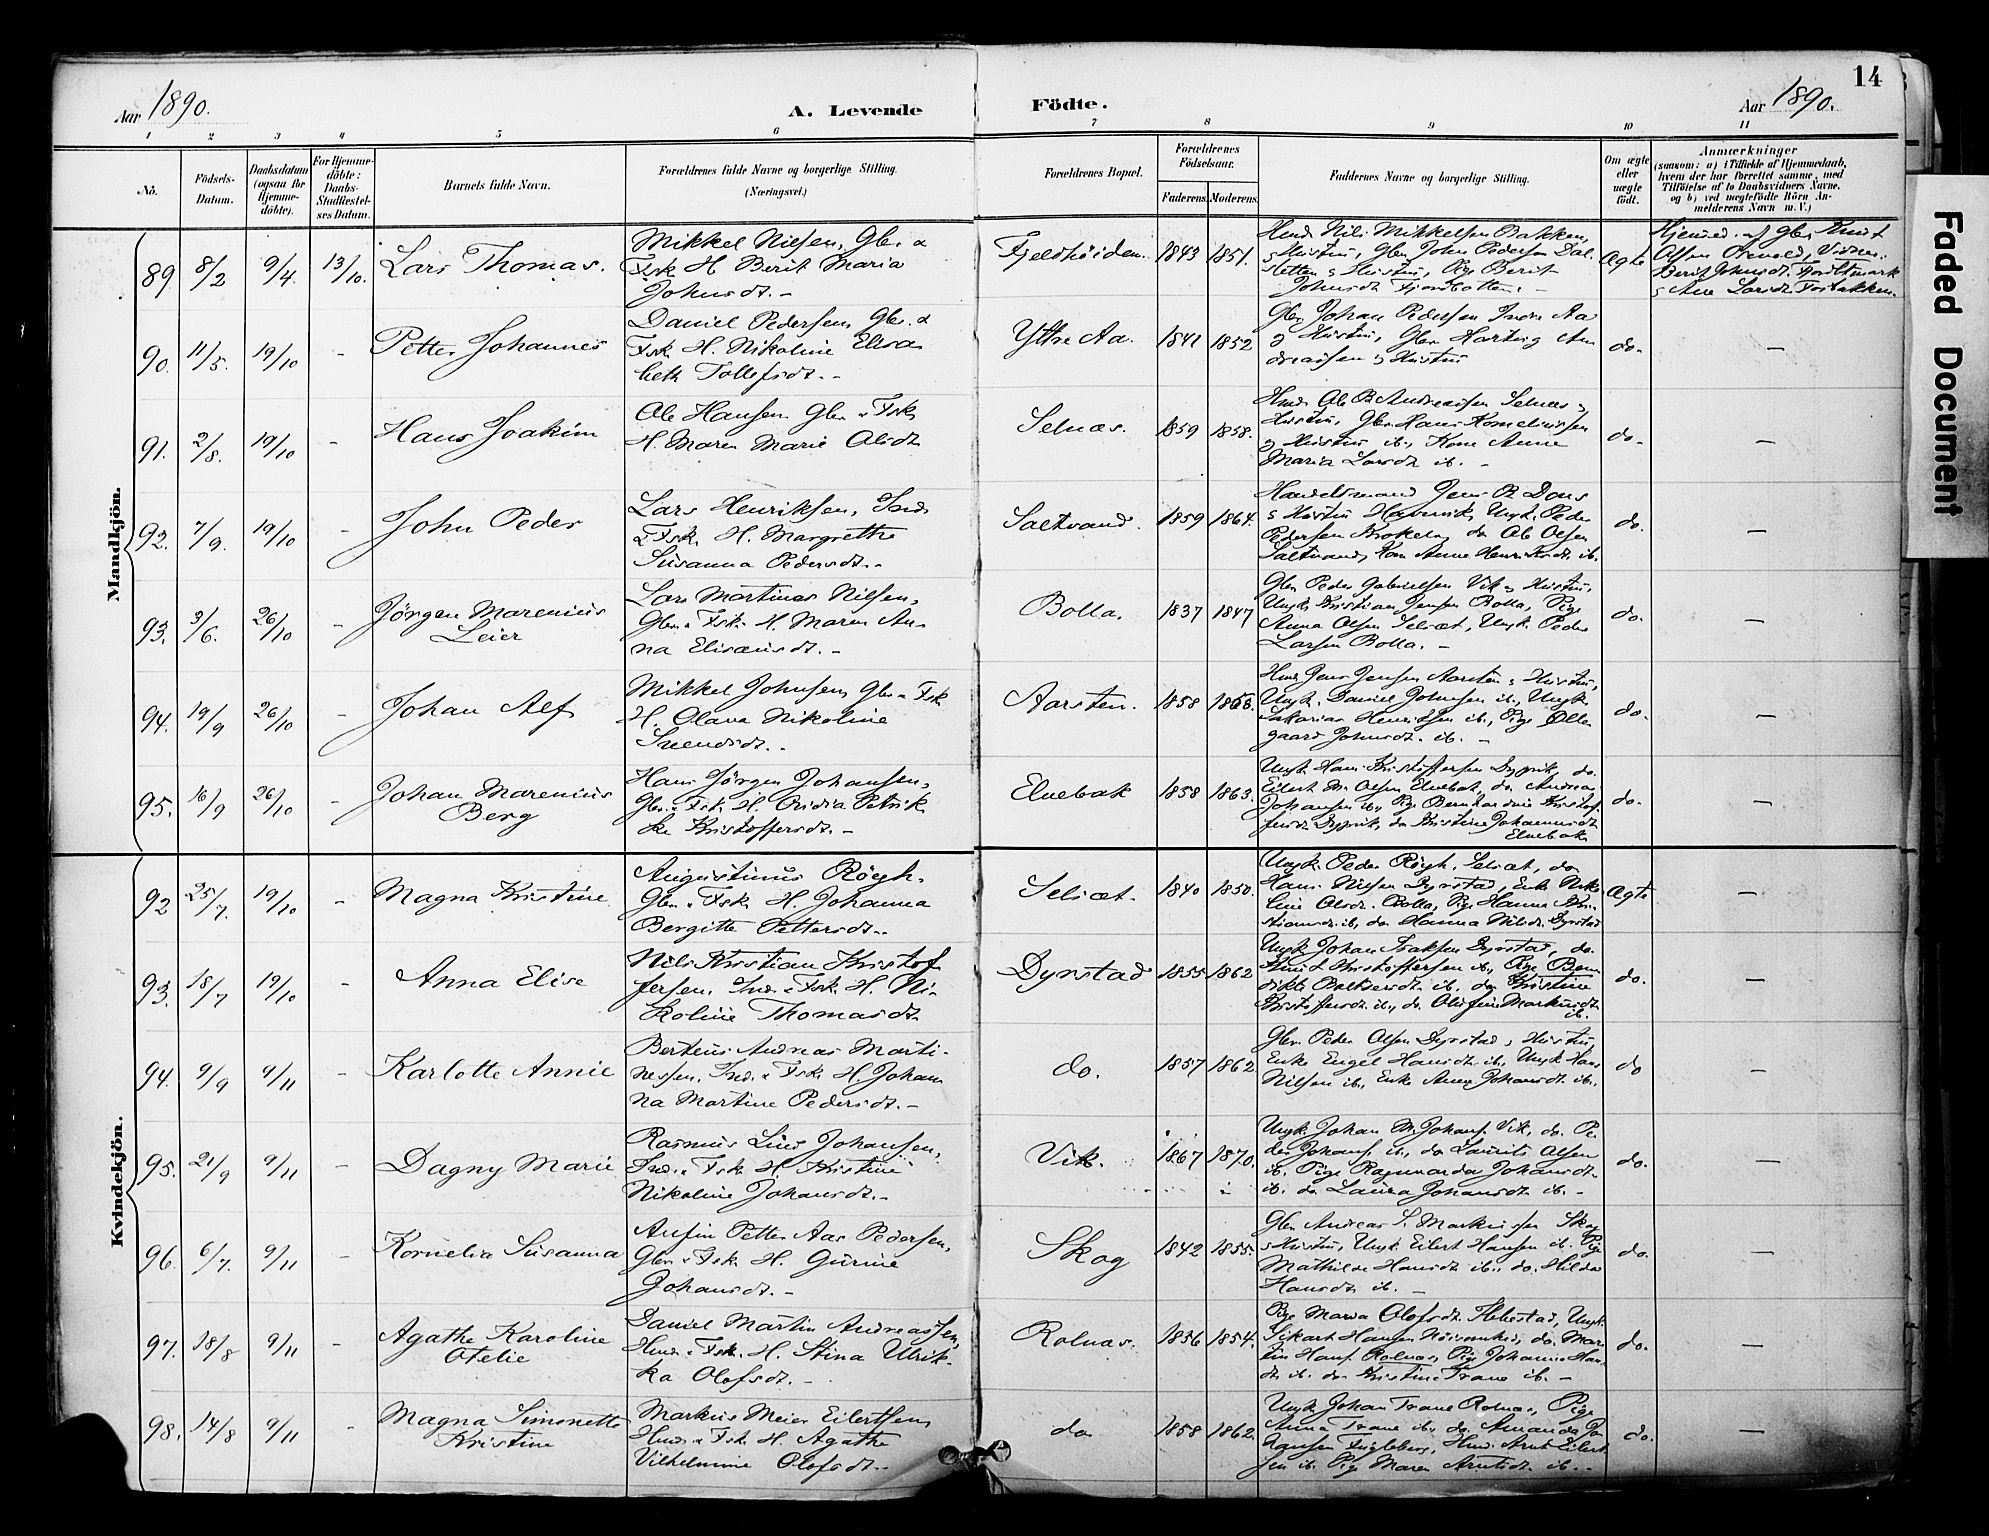 14
Aar 1890.
A. Levende Födte.
Aar 1890.
1 2 3 4 5 6 7 8 9 10 11
No.
Födsels-Datum.
Daabsdatum (ogsaa for Hjemme-döbte).
For Hjemme-döbte: Daabs-Stadfæstel-ses Datum.
Barnets fulde Navn.
Forældrenes fulde Navne og borgerlige Stilling.
(Næringsvei.)
Forældrenes Bopæl.
Forældrenes Födselsaar.
Faderens. Moderens.
Faddernes Navne og borgerlige Stilling.
Om ægte eller uægte födt.
Anmærkninger
(saasom: a) i Tilfælde af Hjemmedaab,
hvem der har forrettet samme, med
Tilföielse af to Daabsvidners Navne.
og b) ved uægtefödte Börn An-
melderens Navn m. V.)
Mandkjön.
89. 8/2 9/4. 13/10. Lars Thomas.
Mikkel Nilsen, Gbr. &
Fsk H. Berit Maria
Johnsdt. -
Fjeldhöiden. 1843 1851.
Hmd Nils Mikkelsen Bakken,
& Hustru, Gbr John Pedersen Dal-
sletten & Hustru, Pige Berit
Johnsdt Fjordbotten. -
Ægte
Hjemmed. af Gbr Knut
90. 11/5. 19/10 - Petter Johannes
Daniel Pedersen, Gbr. &
Fsk. H. Nikoline Elisa
beth Tollefsdt. -
Yttre Aa. 1841 1852
Gbr Johan Pedersen Indre Aa
& Hustru, Gbr Hartvig An
dreassen & Hustru
do- -
91. 2/8. 19/10 - Hans Joakim
Ole Hansen Gbr & Fsk
H. Maren Marie Olsdt
Selnæs. 1859 1858.
Hmd. Ole B. Andreassen Selnæs &
Hustru, Gbr Hans Kornelius
& Hustru ib., Kone Anne
Maria Larsdt ib. -
do- -
92. 7/9. 19/10 - John Peder
Lars Henriksen, Ind.
& Fsk. H. Margrethe
Susanna Pedersdt. -
Saltvand. 1859 1864.
Handelsmand Jens B. Dons
& Hustru Havnvik, Ungk. Peder
Pedersen Krokeng do Ole Olsen
Saltvand, Kone Anne Henriksdt ib.
do. -
93. 3/6. 26/10 - Jörgen Marenius
Leier
Lars Martinus Nilsen,
Gbr. & Fsk. H. Maren An-
na Elisæusdt. -
Bolla. 1837 1847
Gbr Peder Gabrielsen Vik & Hustru,
Ungk. Kristian Jensen Bolla, Pige
Anna Olsen Selsæt, Ungk. Peder
Larsen Bolla. -
do. -
94. 19/9 26/10 - Johan Alf
Mikkel Johnsen, Gbr & Fsk
H. Olava Nikoline
Svendsdt. -
Aarsten. 1858 1868.
Hmd Jens Jensen Aarsten & Hustru,
Ungk. Daniel Johnsen ib., Ungk
Sakarias Henriksen ib., Pige Olle
gaard Johnsdt. ib. -
do. -
95. 16/9 26/10 - Johan Marenius
Berg
Hans Jörgen Johansen,
Gbr. & Fsk. H. Ovidia Petrik
ke Kristoffersdt. -
Elvebak 1858 1863.
Ungk Hans Kristoffersen Dyrvik, do.
Eilert M. Olsen Elvebak, do. Andreas
Johansen ib., Pige Bernhardine Kristof
fersdt Dyrvik, do Kristine Johannesdt
Elvebak
do- -
Kvindekjön.
92 25/7. 19/10 - Magna Kristine
Augustinus Rögh.
Gbr. & Fsk. H. Johanna
Bergitte Pettersdt. -
Selsæt. 1840 1850.
Ungk. Peder Rögh, Selsæt, do
Hans Nilsen Dyrstad, Enke Niko
line Olsdt. Bolla, Pige Hanna Kri-
stiansdt ib, do Hanna Nilsdt Dyrstad
Ægte -
93. 18/7 19/10 - Anna Elise
Nils Kristian Kristof
fersen, Ind. & Fsk. H. Ni-
koline Thomasdt.
Dyrstad 1855 1862.
Ungk Johan Isaksen Dyrstad, do.
Knut Kristoffersen ib., Pige Ben
dikte Baltsersdt. ib., do Kristine
Kristoffersdt ib., do. Olufine Markusdt
ib.
do. -
94. 9/9 9/11 - Karlotte Annie
Berteus Andreas Marti-
nessen, Ind. & Fsk. H. Johan
na Martine Pedersdt. -
do. 1857 1862
Gbr. Peder Olsen Dyrstad & Hustru,
Enke Engel Hansdt ib., Ungk Hans
Nilsen ib., Enke Anne Johansdt ib.
do -
95. 21/9 9/11 - Dagny Marie
Rasmus Lius Johansen,
Ind. & Fsk H. Kristine
Nikoline Johansdt. -
Vik. 1867 1870.
Ungk. Johan M. Johans. Vik, do. Pe-
der Johans. ib., do Laurits Olsen
ib. Pige Ragnvarda Johansdt.
ib. do Laura Johansdt ib. -
do. -
96. 6/7. 9/11 - Kornelia Susanna
Anfin Petter Aas Pedersen,
Gbr & Fsk. H. Gurine
Johansdt. -
Skog 1842 1855.
Gbr Andreas S. Markussen Skog
& Hustru, Ungk. Eilert Hansen ib. Pige
Mathilde Hansdt ib., do. Hilda
Hansdt ib. -
do. -
97. 18/8 9/11 - Agathe Karoline
Otelie
Daniel Martin Andreassen,
Hmd. & Fsk. H. Stina Ulrik-
ka Olofsdt. -
Rolnæs. 1856 1854.
Pige Maria Olofsdt. Ibbestad, Ungk.
tin Hans. Rolnæs, Pige Johanna Han
dt. ib. do Kristine Trane ib. -
do. -
98. 14/8 9/11 - Magna Simonette
Kristine
Markus Meier Eilertsen,
Hmd. & Fsk. H. Agathe
Vilhelmine Olofsdt. -
do 1858 1862.
Ungk Johan Trane Rolnæs, Pige
Anna Trane ib., do. Amanda Jo
hansen Fugleberg, Hmd. Arnt Eilert
sen ib. Pige Maren Arntsdt. ib. -
do. -
Faded Document